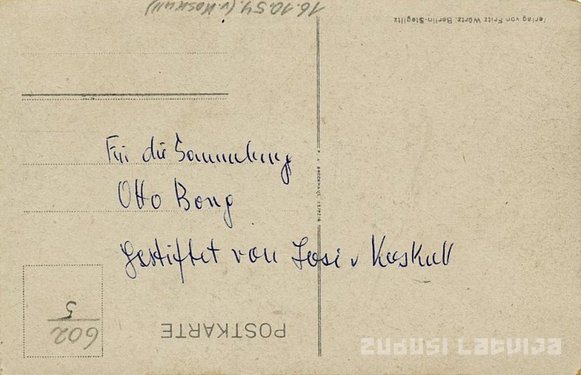 16.10.54. (v. Koskull)
Verlag von Fritz Würtz, Berlin-Steglitz
Für die Sammlung
Otto Bong
Gestiftet von Josi v Koskull
602
5
POSTKARTE
zudusi Latvija